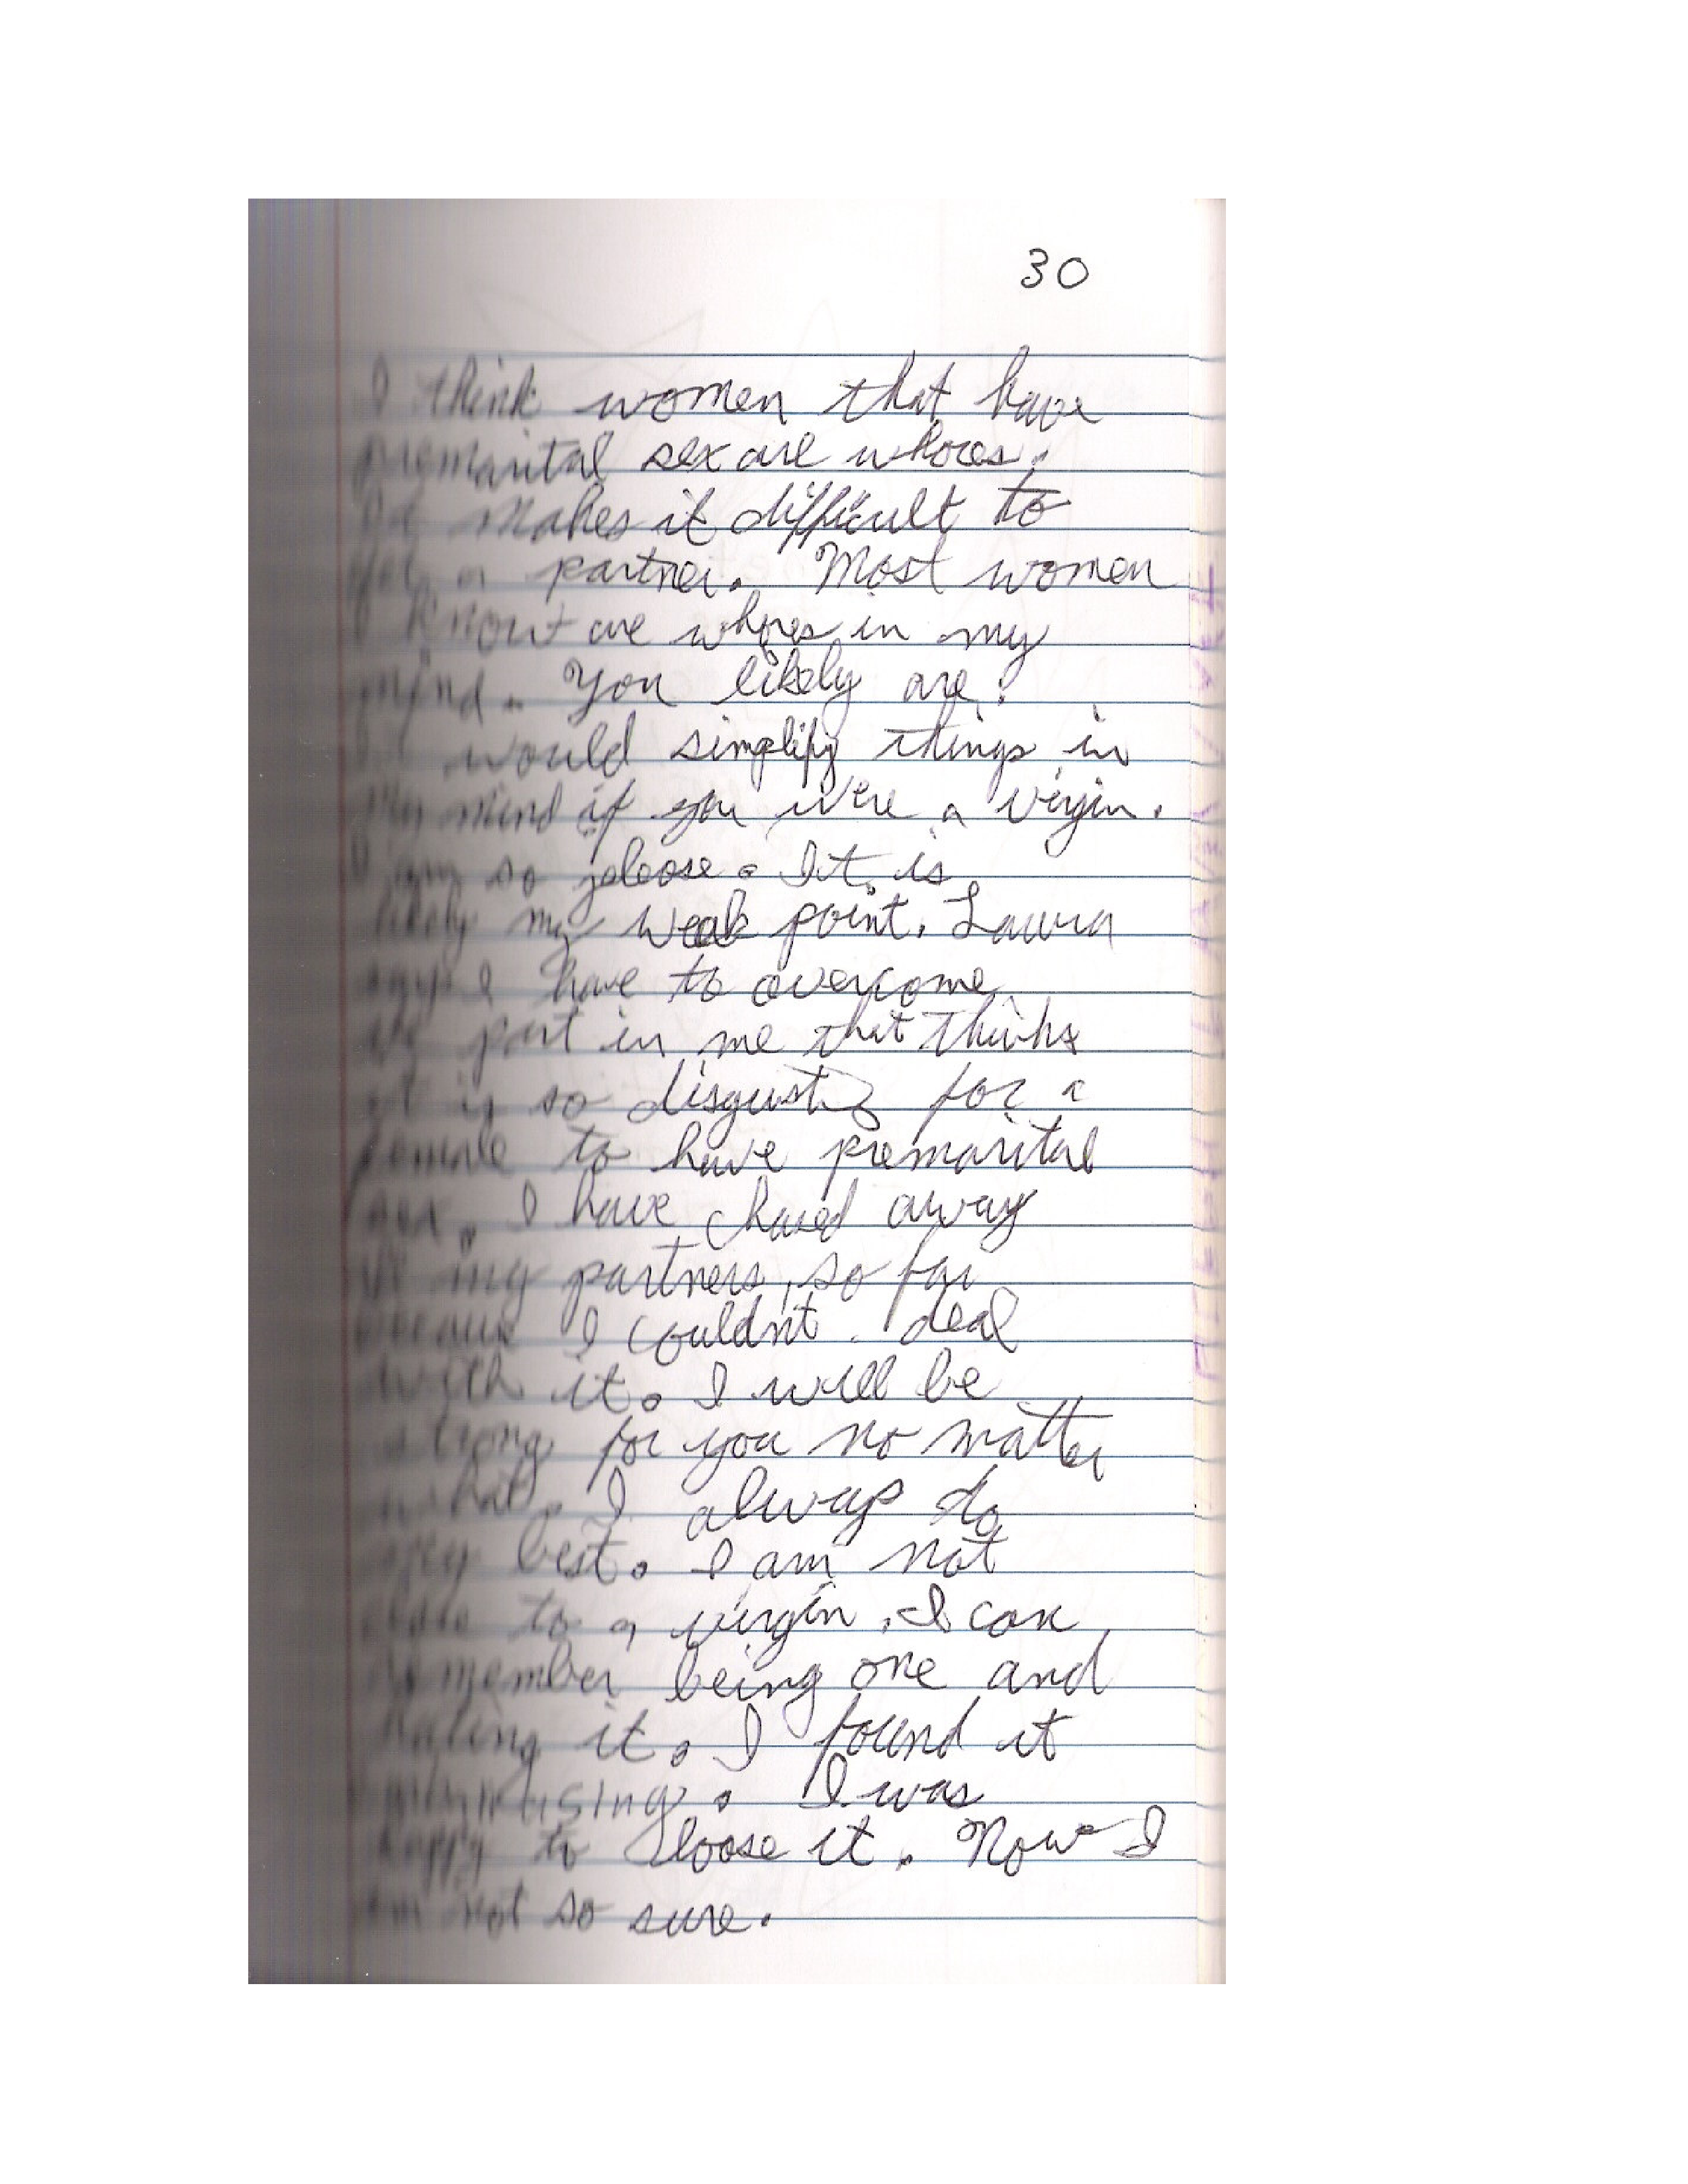 30
I think women that have
premarital sex are whores.
It makes it difficult to
get a partner. Most women
I know are whores in my
mind. You likely are.
It would simplify things in
my mind if you were a virgin.
I am so jeloose. It is
likely my weak point. Laura
says I have to overcome
the part in me that thinks
it is so disgusting for a
female to have premarital
sex. I have chased away
all my partners, so far
because I couldn't deal
with it. I will be
strong for you no matter
what. I always do
my best. I am not
close to a virgin. I can
remember being one and
hating it. I found it
I was
happy to loose it. Now I
am not so sure.